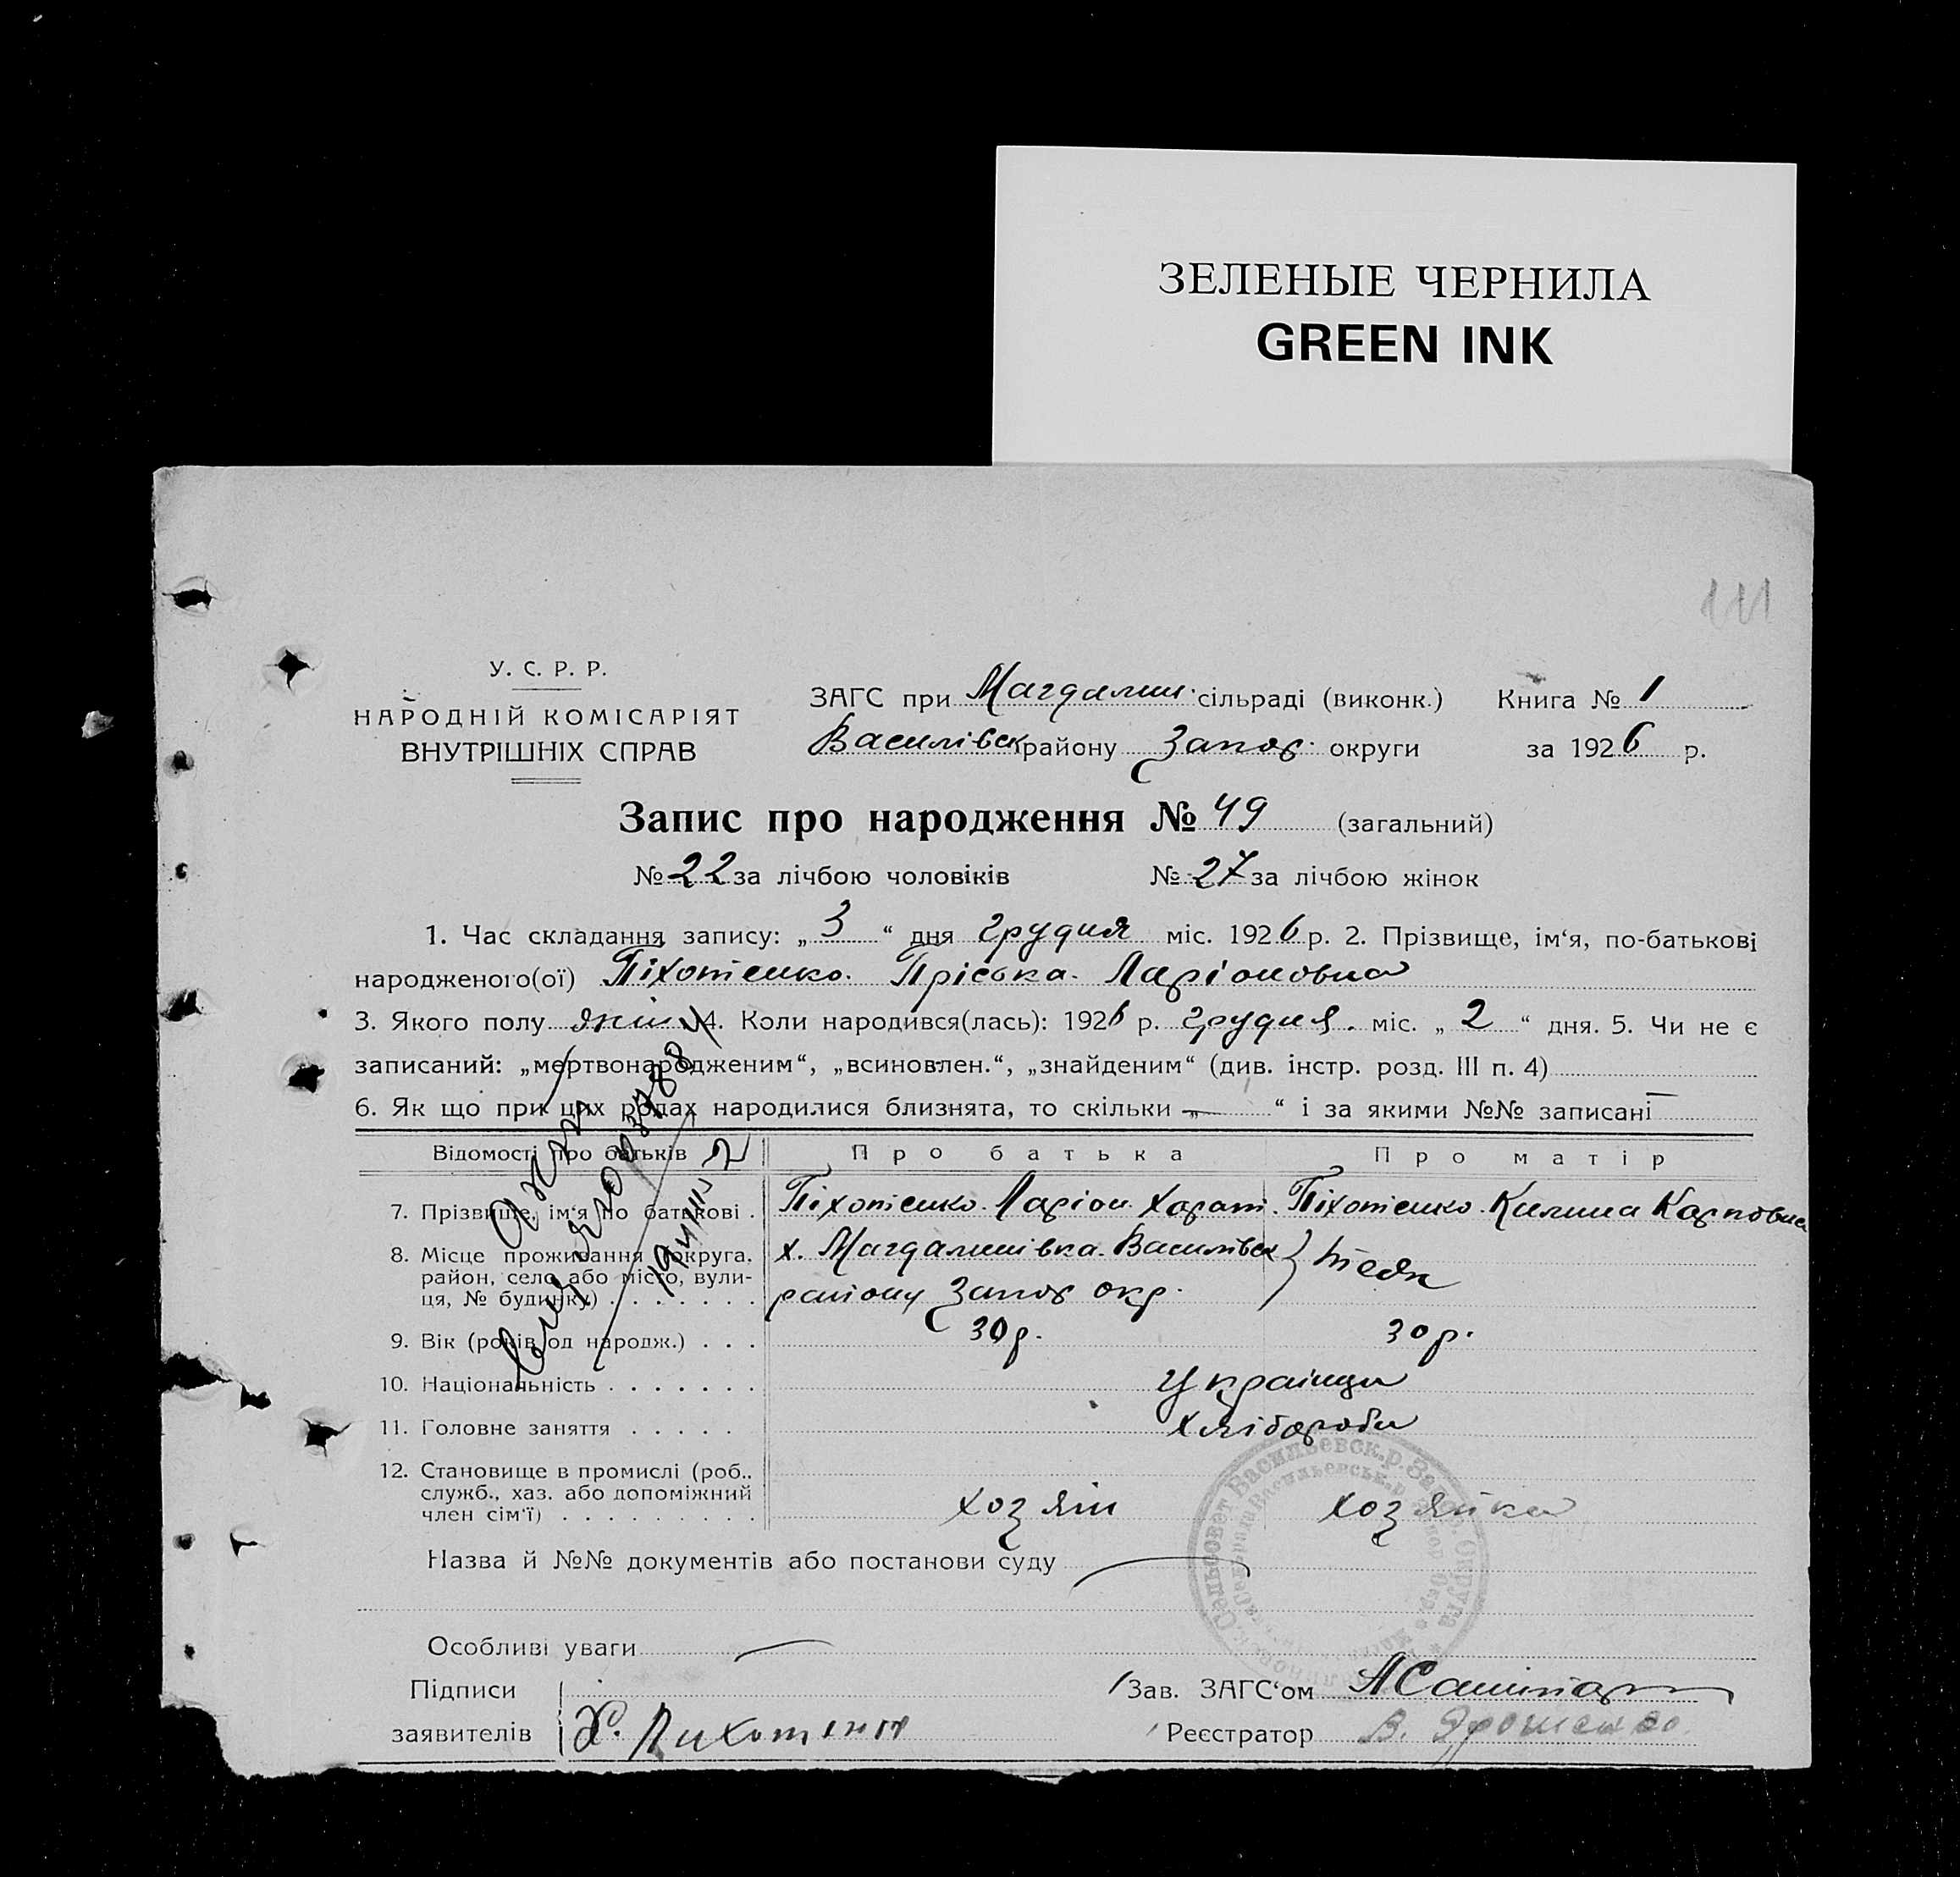 ЗЕЛЕНЫЕ ЧЕРНИЛА
GREEN INK
111
У. С. Р. Р.
НАРОДНІЙ КОМІСАРІЯТ
ВНУТРІШНІХ СПРАВ
ЗАГС при Магдалин. сільраді (виконк.) Книга № 1
Василівск району Запор. округи за 1926 р.
Запис про народження № 49 (загальний)
№ 22 за лічбою чоловіків № 27 за лічбою жінок
1. Час складання запису: „ 3 “ дня грудня міс. 1926 р. 2. Прізвище, ім‘я, по-батькові
народженого(ої) Піхотенко. Пріська. Ларіоновна
3. Якого полу жін 4. Коли народився(лась): 1926 р. грудня. міс. „ 2 “ дня. 5. Чи не є
записаний: „мертвонародженим“, „всиновлен.“, „знайденим“ (див. інстр. розд. III п. 4)
6. Як що при цих родах народилися близнята, то скільки „ — “ і за якими №№ записані —
Відомості про батьків Про батька Про матір
7. Прізвище, ім‘я по батькові . Піхотенко. Ларіон. Харат. Піхотенко. Килина Карповна
8. Місце проживання (округа, район, село або місто, вулиця, № будинку) . . . . . . . х. Магдалинівка. Василівск
району Запор окр. теж
9. Вік (років од народж.) . . . 30 р. 30 р.
10. Національність . . . . . . . Українци
11. Головне заняття . . . . . Хлібороби
12. Становище в промислі (роб..
служб., хаз. або допоміжний
член сім‘ї) . . . . . . . . . хозяїн хозяйка
Назва й №№ документів або постанови суду
Особливі уваги
Підписи
заявителів Х. Пихотенко
Зав. ЗАГС‘ом
Реєстратор В. Ярошенко.